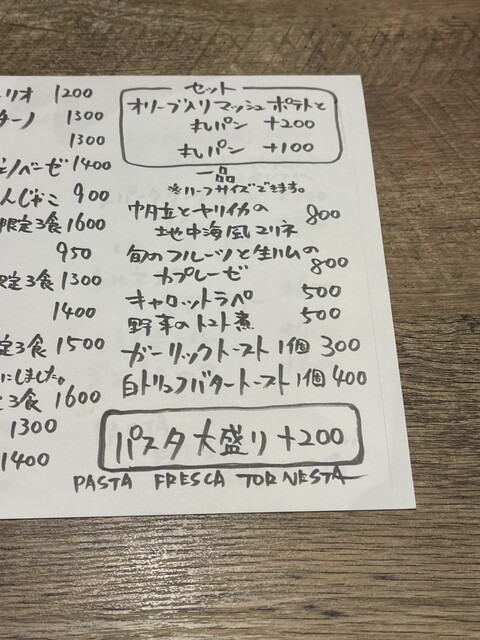 ュリオ 1200
ターノ 1300
1300
ェノベーゼ 1400
んじゃこ 900
限定3食 1600
950
限定3食 1300
1400
定3食 1500
にしました。
定3食 1600
1300
1400
セット
オリーブ入りマッシュポテトと
丸パン +200
丸パン +100
一品
※ハーフサイズできます。
帆立とヤリイカの
地中海風マリネ 800
旬のフルーツと生ハムの
カプレーゼ 800
キャロットラペ 500
野菜のトマト煮 500
ガーリックトースト1個 300
白トリュフバタートースト1個 400
パスタ大盛り +200
PASTA FRESCA TORNESTA